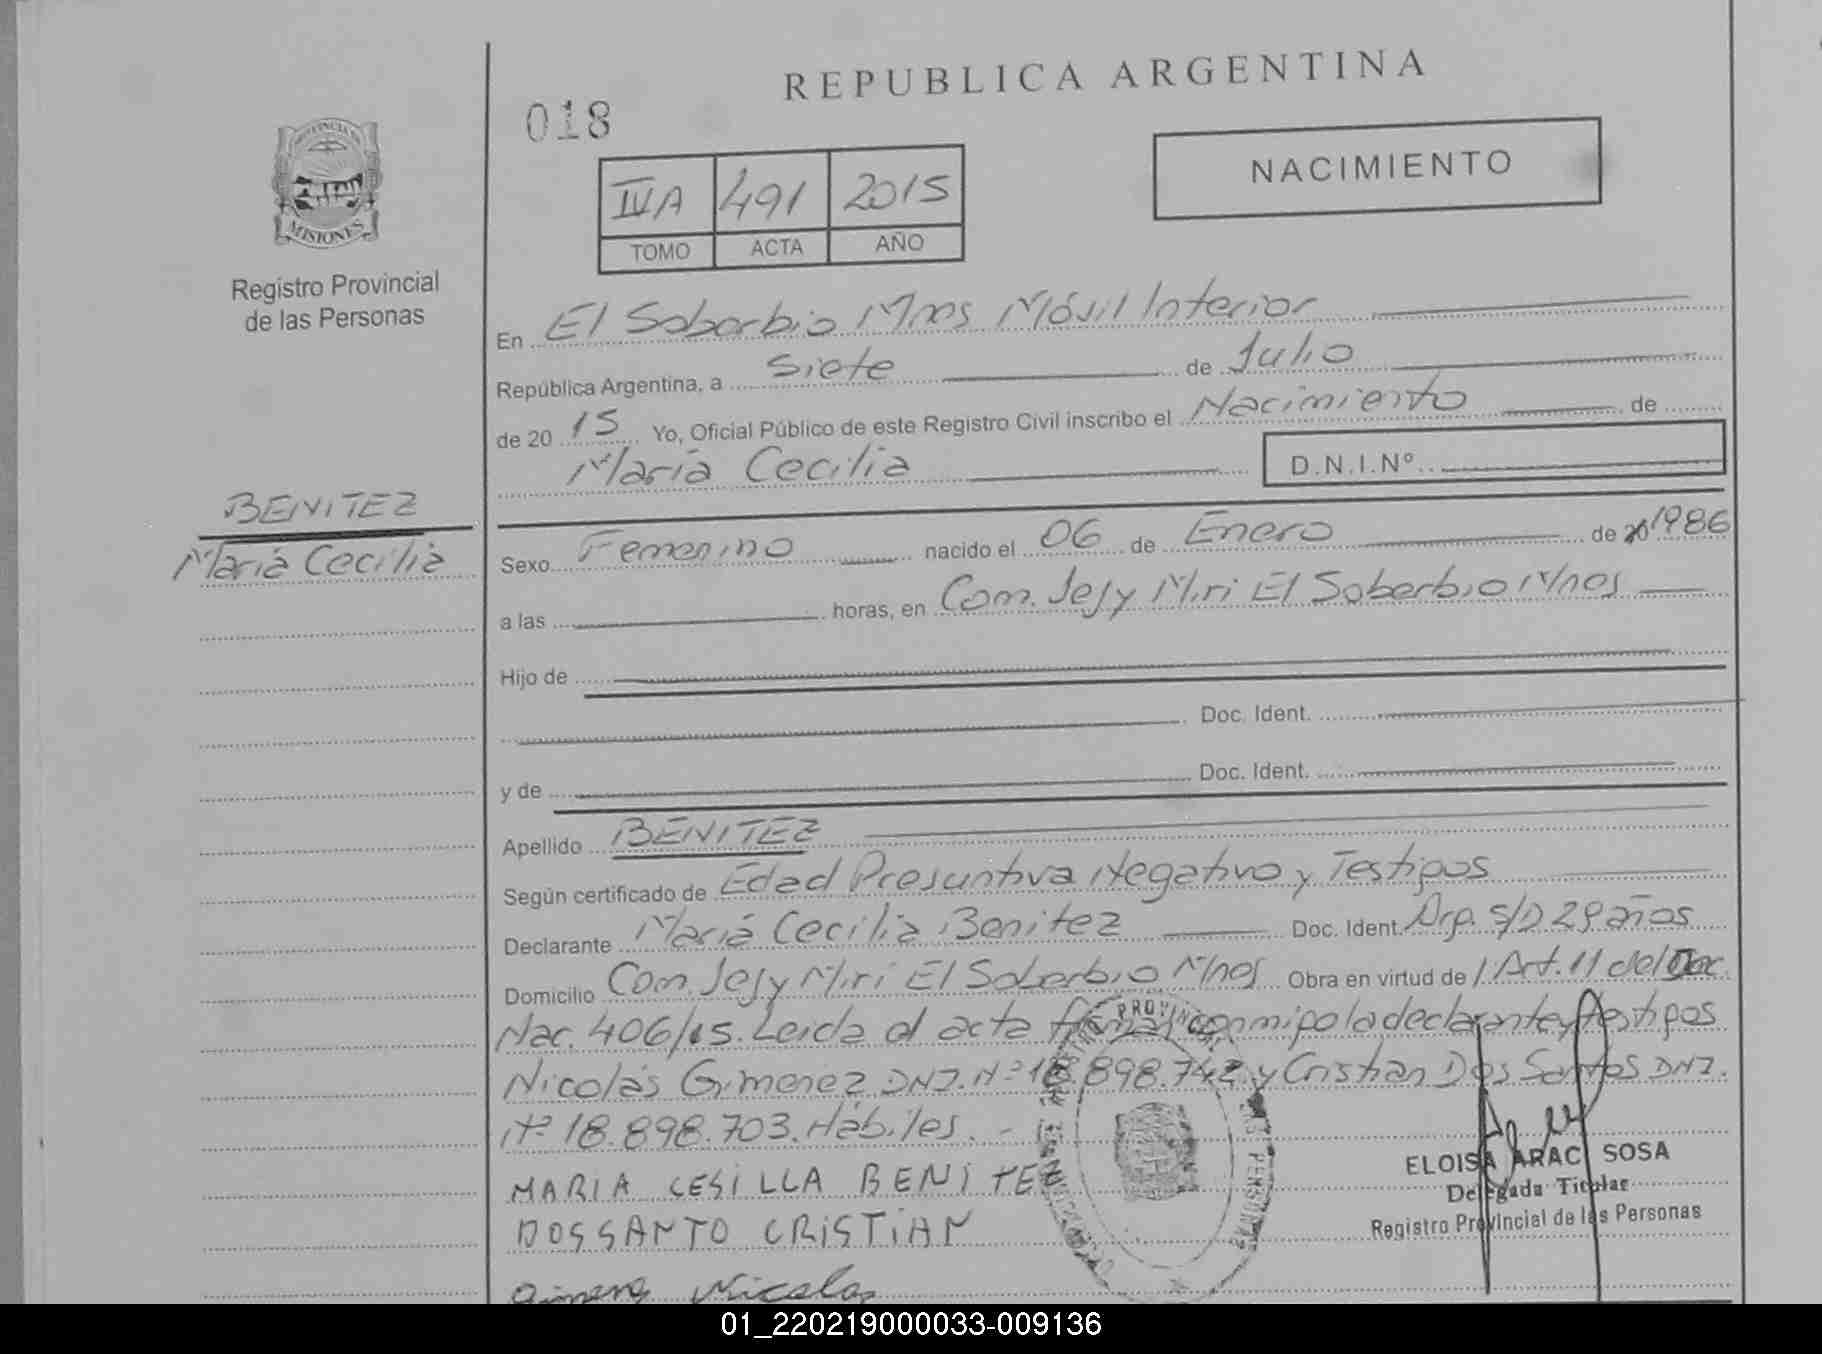 REPUBLICA ARGENTINA
018
NACIMIENTO
PROVINCIA DE
MISIONES
Registro Provincial
de las Personas
IVA 491 2015
TOMO ACTA AÑO
En El Soberbio Mnes Móvil Interior
República Argentina, a Siete de Julio
de 20 15 Yo, Oficial Público de este Registro Civil inscribo el Nacimiento de
María Cecilia D.N.I.Nº
BENITEZ
María Cecilia
Sexo Femenino nacido el 06 de Enero de 1986
a las horas, en Com. Jejy Miri El Soberbio Mnes
Hijo de
Doc. Ident.
y de Doc. Ident.
Apellido BENITEZ
Según certificado de Edad Presuntiva Negativo y Testigos
Declarante María Cecilia Benitez Doc. Ident. Arg. S/D 29 años
Domicilio Com. Jejy Miri El Soberbio Mnes Obra en virtud de l Art. 11 del Dec
Nac. 406/15. Leida el acta firman conmigo la declarante y testigos
Nicolás Gimenez DNI. Nº 18.898.742 y Cristian Dos Santos DNI.
Nº 18.898.703. Hábiles. -
MARIA CESILLA BENITEZ
DOSSANTO CRISTIAN
Nicolas
ELOISA ARACI SOSA
Delegada Titular
Registro Provincial de las Personas
01_220219000033-009136